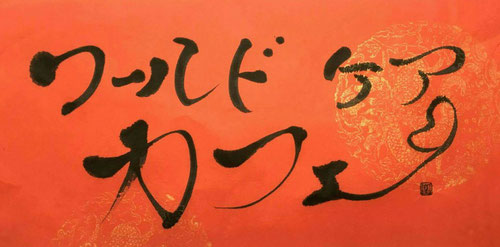 ワールド ケア
カフェ